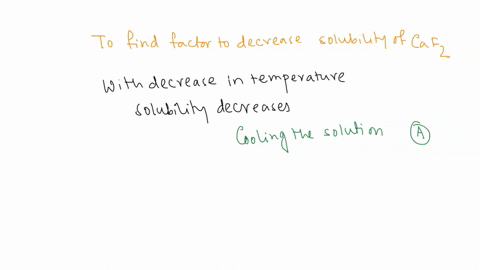 To find factor to decrease solubility of CaF2
With decrease in temperature
solubility decreases
Cooling the solution A